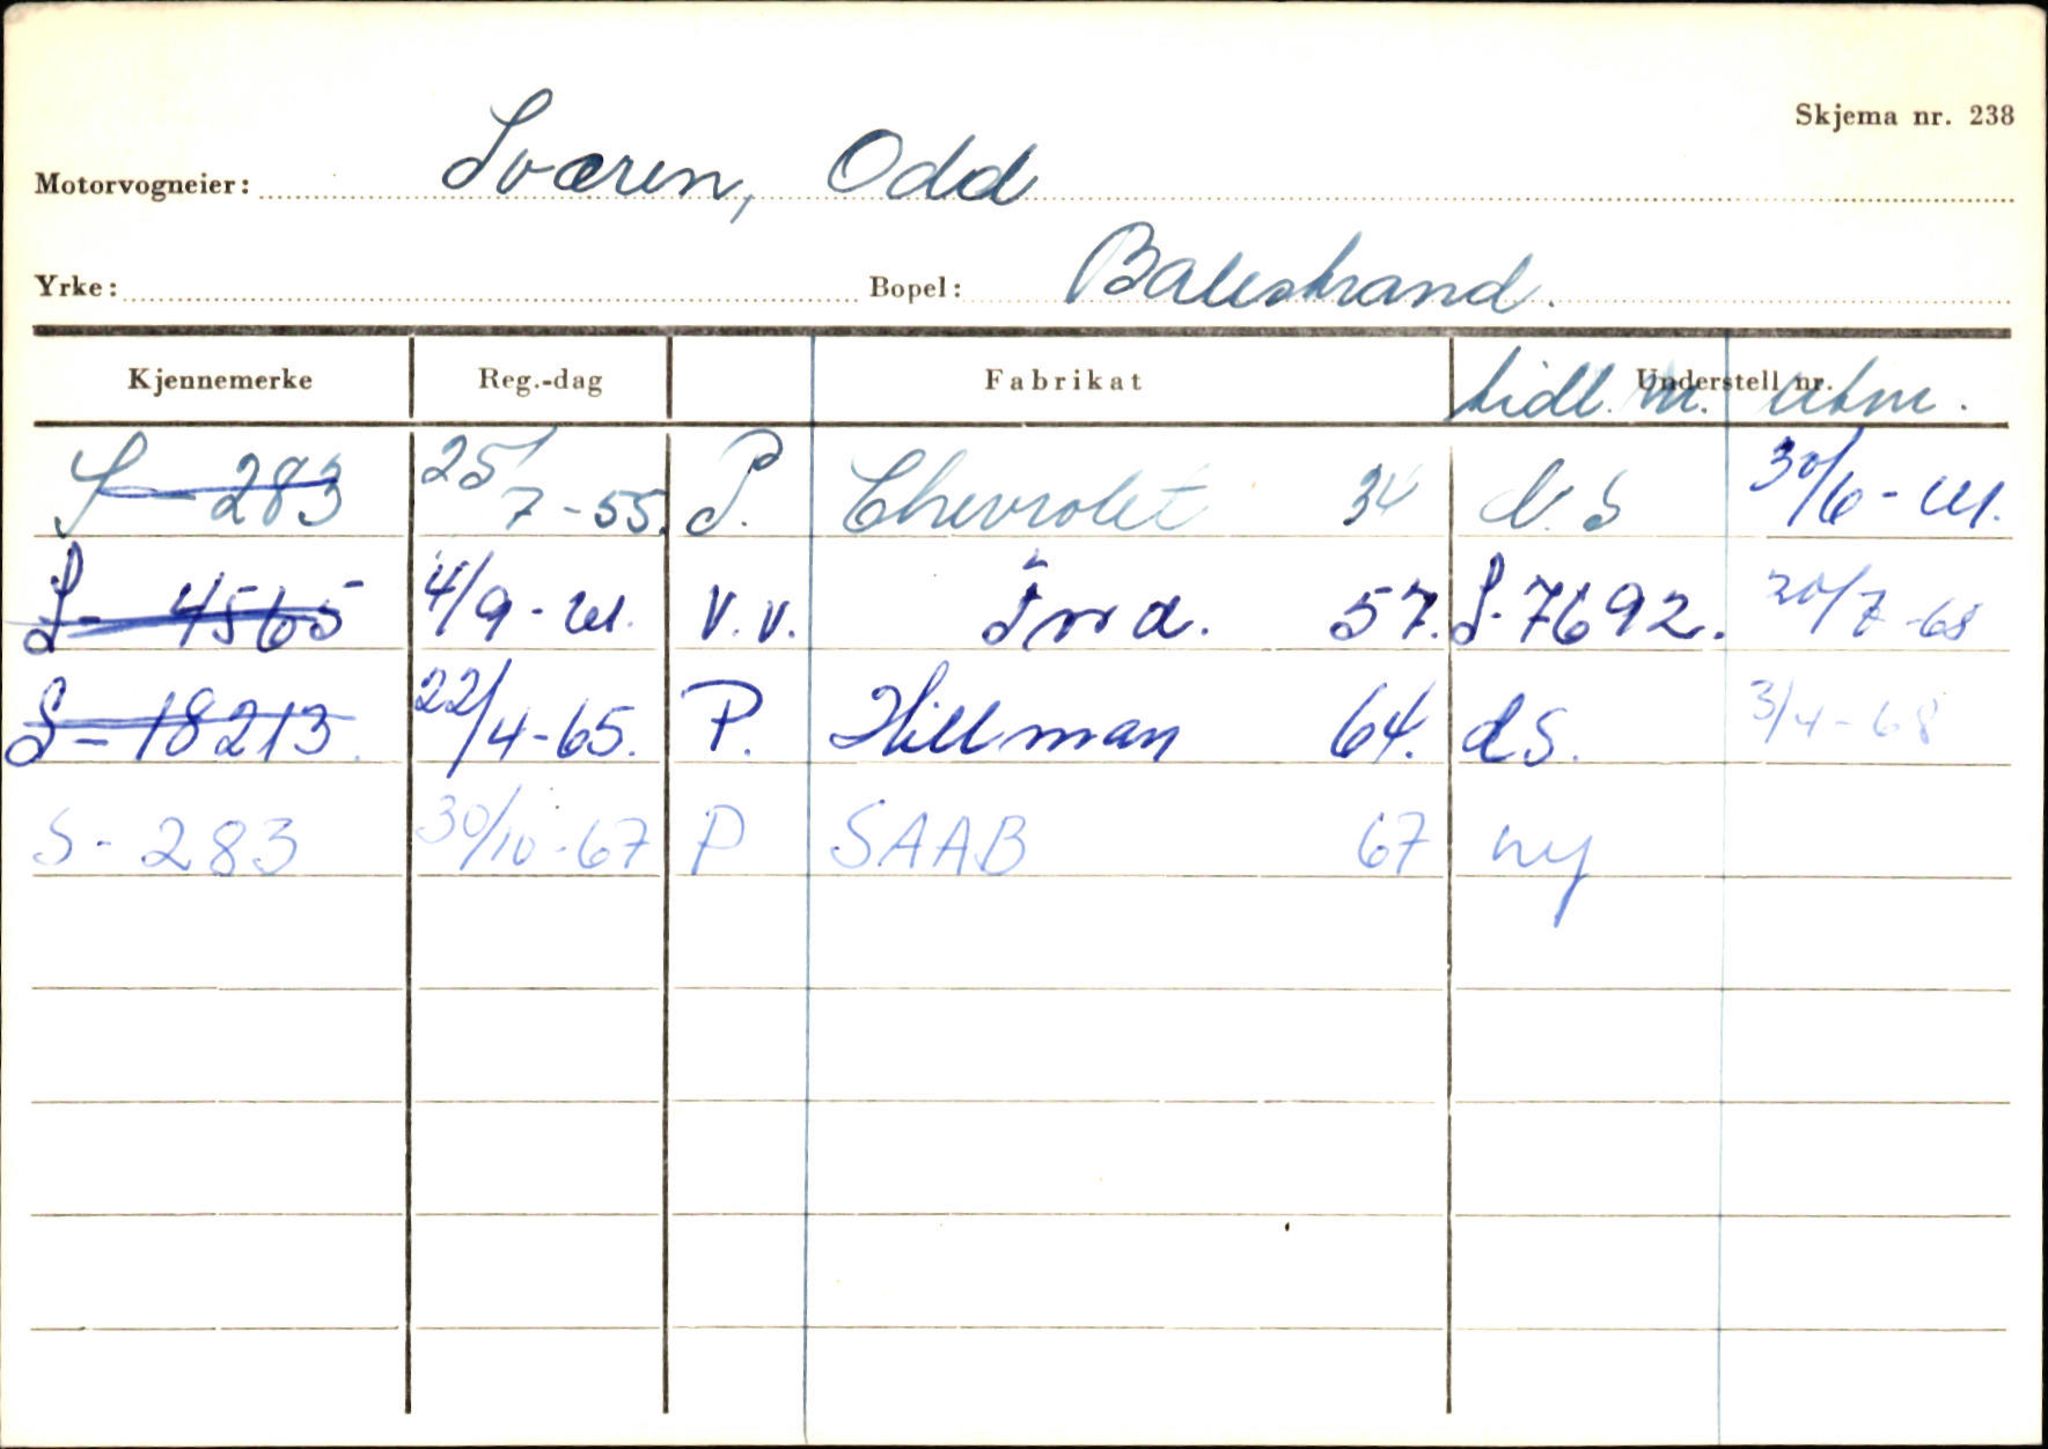 Skjema nr. 238
Motorvogneier: Sværen, Odd
Yrke: Bopel: Balestrand.
Kjennemerke Reg.-dag Fabrikat Understell nr.
tidl. nr. Utm.
S-283 25/7-55. P. Chevrolet 34 d. S 30/6-61.
S-4565 4/9-61. V.V. Ford. 57. S-7692. 20/7-68
S-18213. 22/4-65. P. Hillman 64. dS. 3/4-68
S-283 30/10-67 P SAAB 67 ny